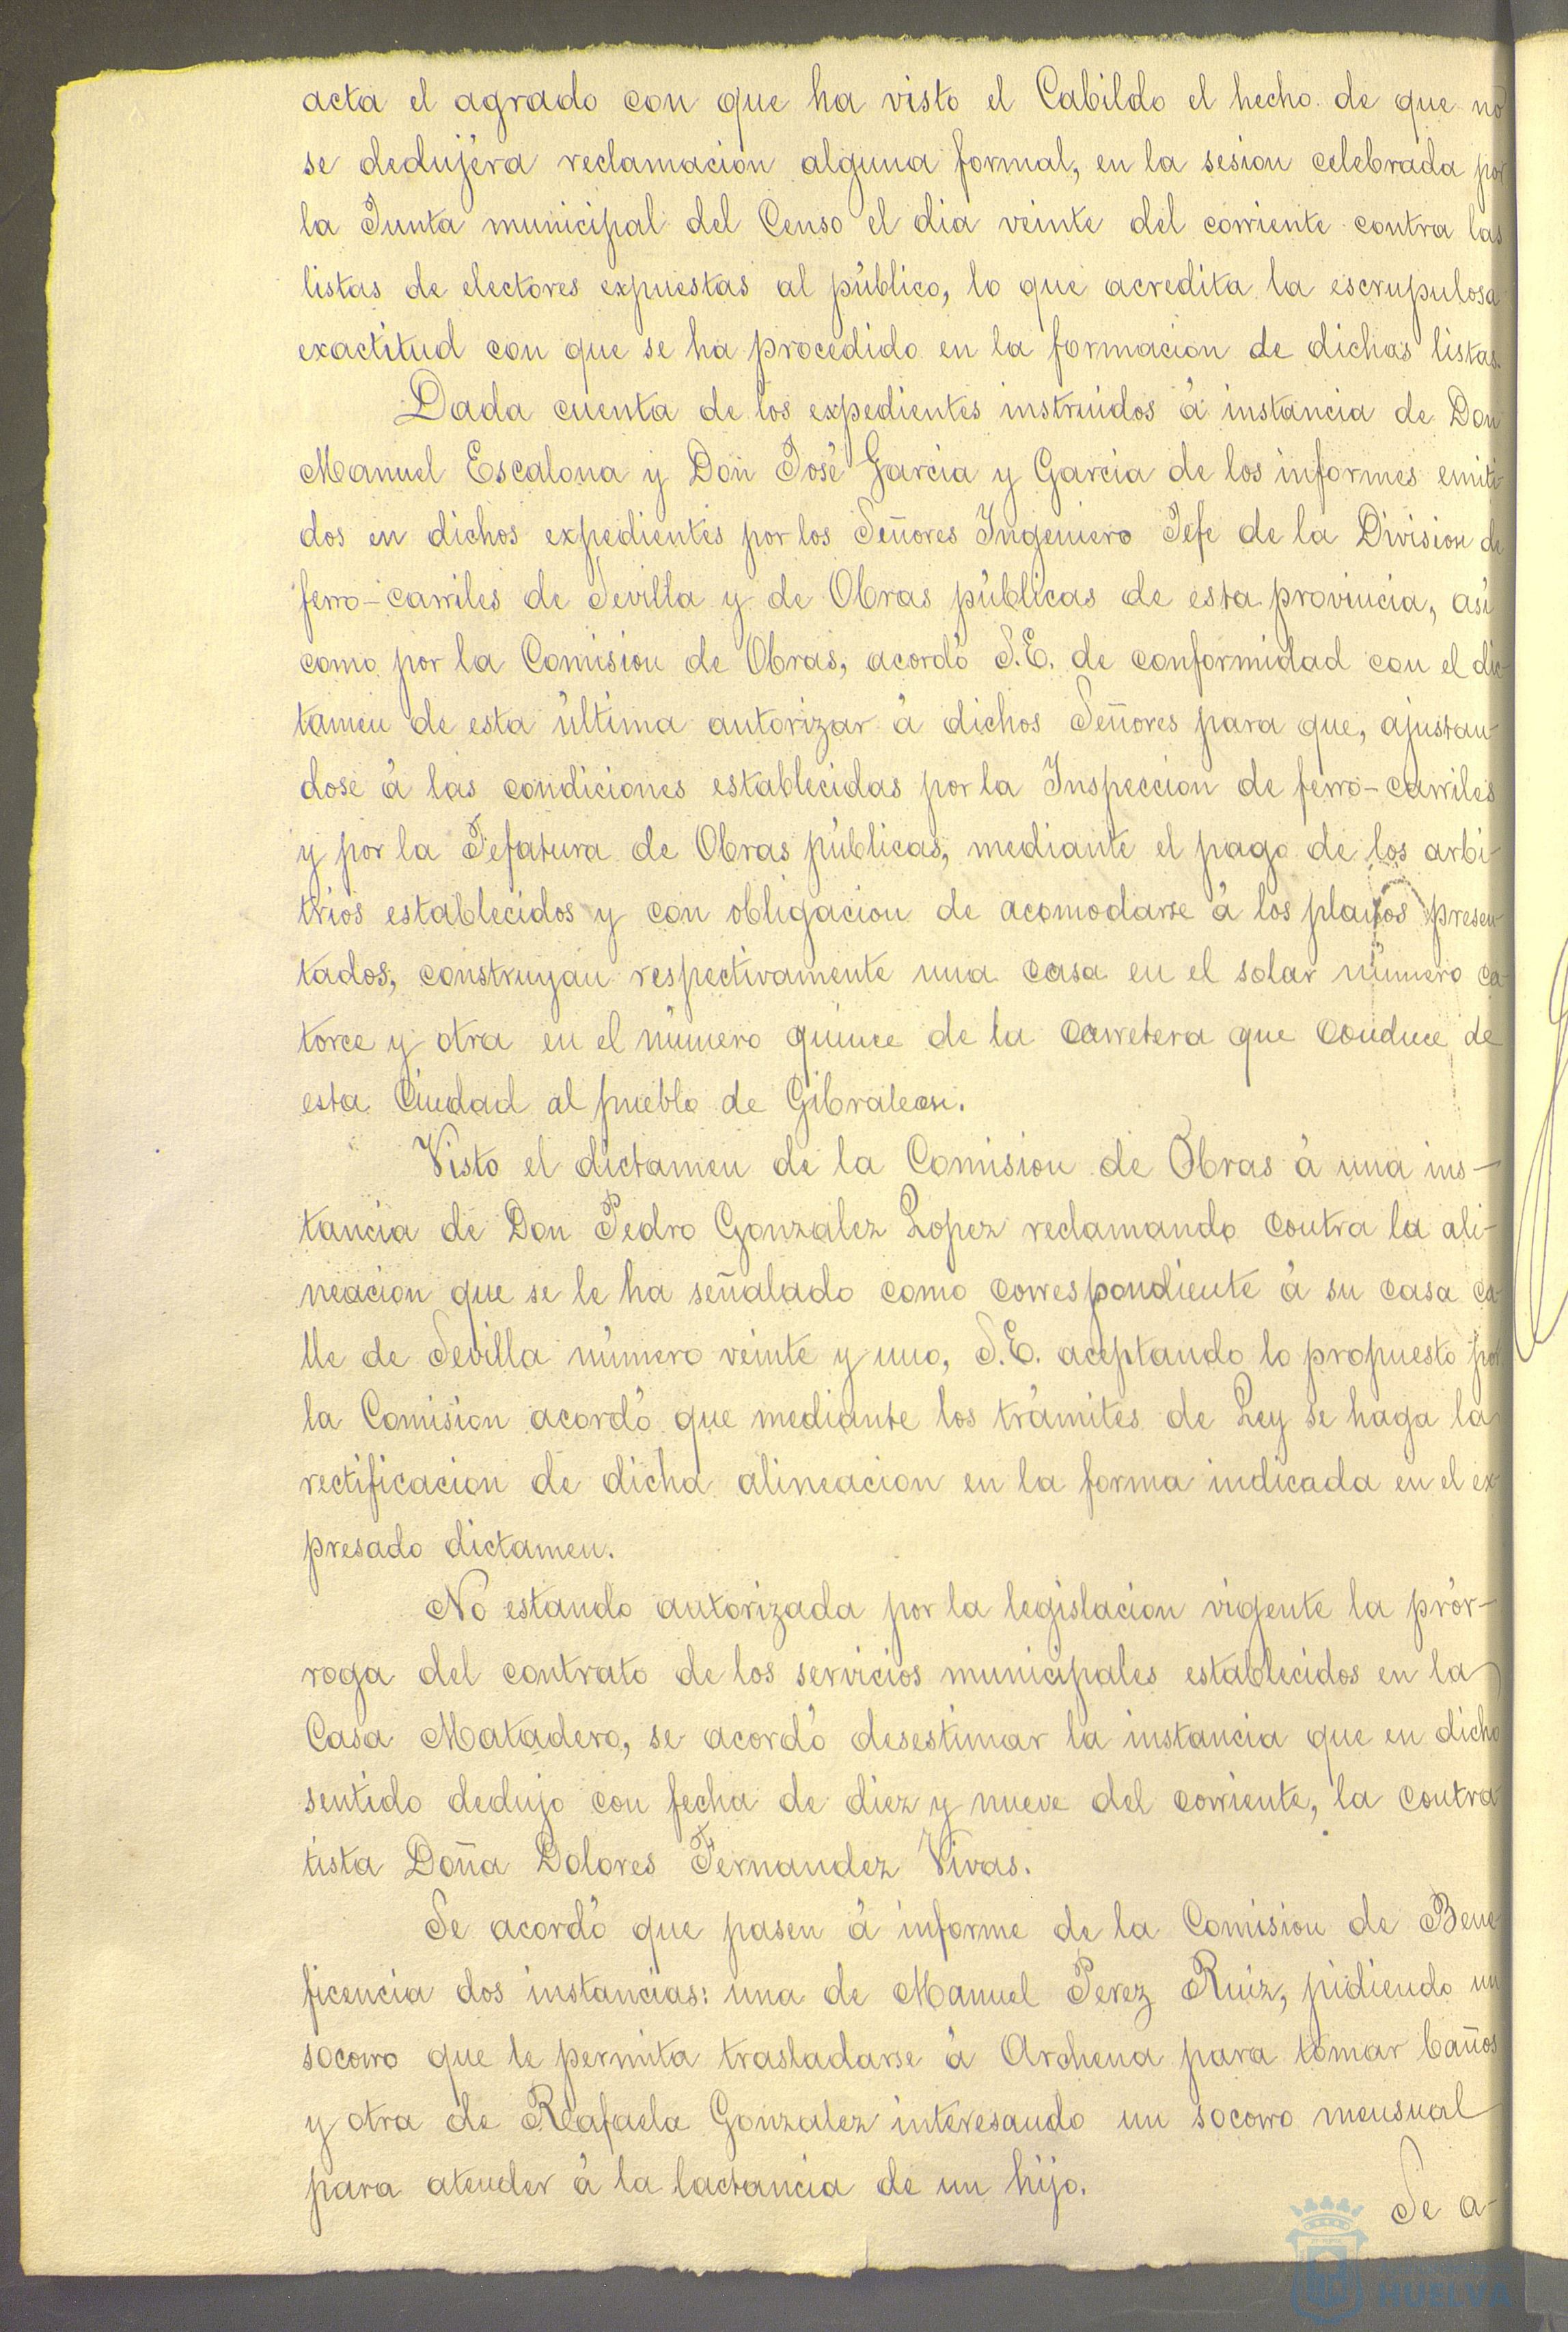 acta el agrado con que ha visto el Cabildo el hecho de que no
se dedujéra reclamacion alguna formal, en la sesion celebrada por
la Junta municipal del Censo el dia veinte del corriente contra las
listas de electores expuestas al público, lo que acredita la escrupulosa
exactitud con que se ha procedido en la formacion de dichas listas.
Dada cuenta de los expedientes instruidos á instancia de Don
Manuel Escalona y Don José Garcia y Garcia de los informes emiti-
dos en dichos expedientes por los Señores Ingeniero Jefe de la Division de
ferro-carriles de Sevilla y de Obras públicas de esta provincia, asi
como por la Comision de Obras, acordó S.E. de conformidad con el dic-
tamen de esta última autorizar á dichos Señores para que, ajustan-
dose á las condiciones establecidas por la Inspeccion de ferro-carriles
y por la Jefatura de Obras públicas, mediante el pago de los arbi-
trios establecidos y con obligacion de acomodarse á los planos presen-
tados, construyan respectivamente una casa en el solar número ca-
torce y otra en el número quince de la carretera que conduce de
esta Ciudad al pueblo de Gibraleon.
Visto el dictamen de la Comision de Obras á una ins-
tancia de Don Pedro Gonzalez Lopez reclamando contra la ali-
neacion que se le ha señalado como correspondiente á su casa ca-
lle de Sevilla número veinte y uno, S.E. aceptando lo propuesto por
la Comision acordó que mediante los trámites de Ley se haga la
rectificacion de dicha alineacion en la forma indicada en el ex-
presado dictamen.
No estando autorizada por la legislacion vigente la prór-
roga del contrato de los servicios municipales establecidos en la
Casa Matadero, se acordó desestimar la instancia que en dicho
sentido dedujo con fecha de diez y nueve del corriente, la contra-
tista Doña Dolores Fernandez Vivas.
Se acordó que pasen á informe de la Comision de Bene-
ficencia dos instancias: una de Manuel Perez Ruiz, pidiendo un
socorro que le permita trasladarse á Archena para tomar baños
y otra de Rafaela Gonzalez interesando un socorro mensual
para atender á la lactancia de un hijo.
Se a-
HUELVA